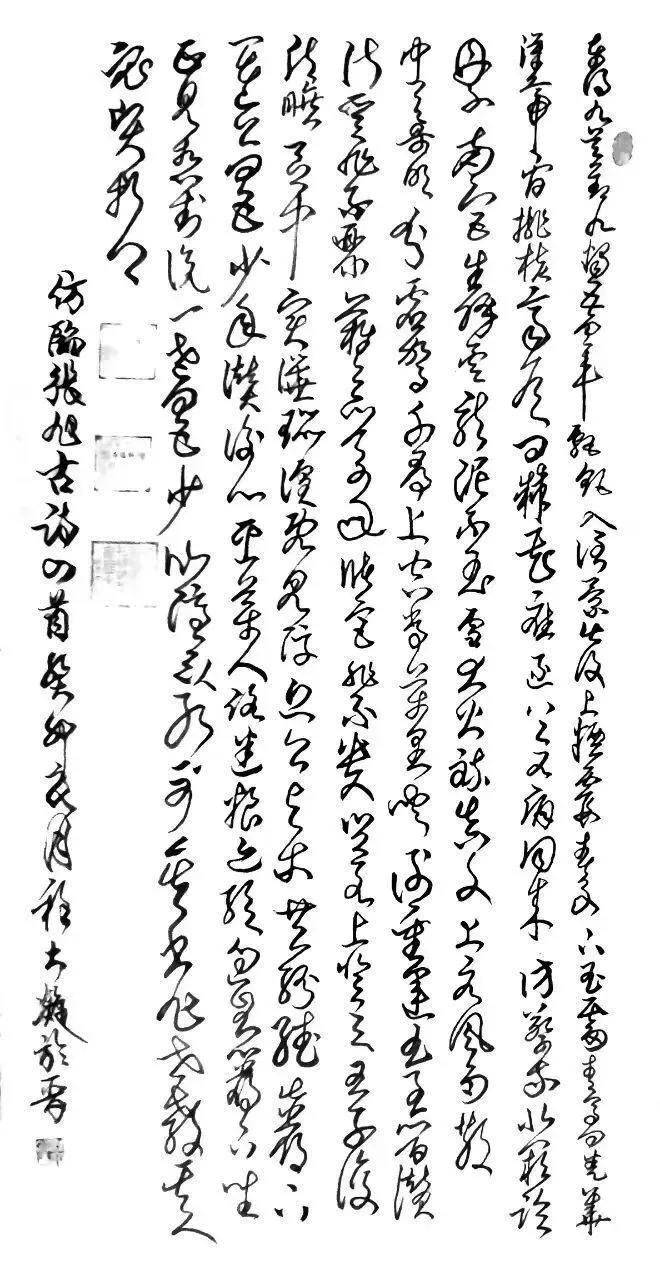 東明九芝蓋北燭五雲車飄飖入倒景出沒上煙霞春泉下玉霤青鳥向金華
漢帝看桃核齊侯問棘花應逐上元酒同來訪蔡家北闕臨
丹水南宮生絳雲龍泥印玉策大火煉真文上元風雨散
中天歌吹分靈駕千尋上空香萬里聞謝靈運王子晉贊
淑質非不麗難之以萬年儲宮非不貴豈若上登天王子復
清曠區中實譁囂喧既見浮丘公與爾共紛繙巖下
一老公四五少年贊衡山採藥人路迷糧亦絕過息巖下坐
正見相對說一老四五少仙隱不別可其書非世教其人
必賢哲
仿臨張旭古詩四首癸卯亥月程大於晉